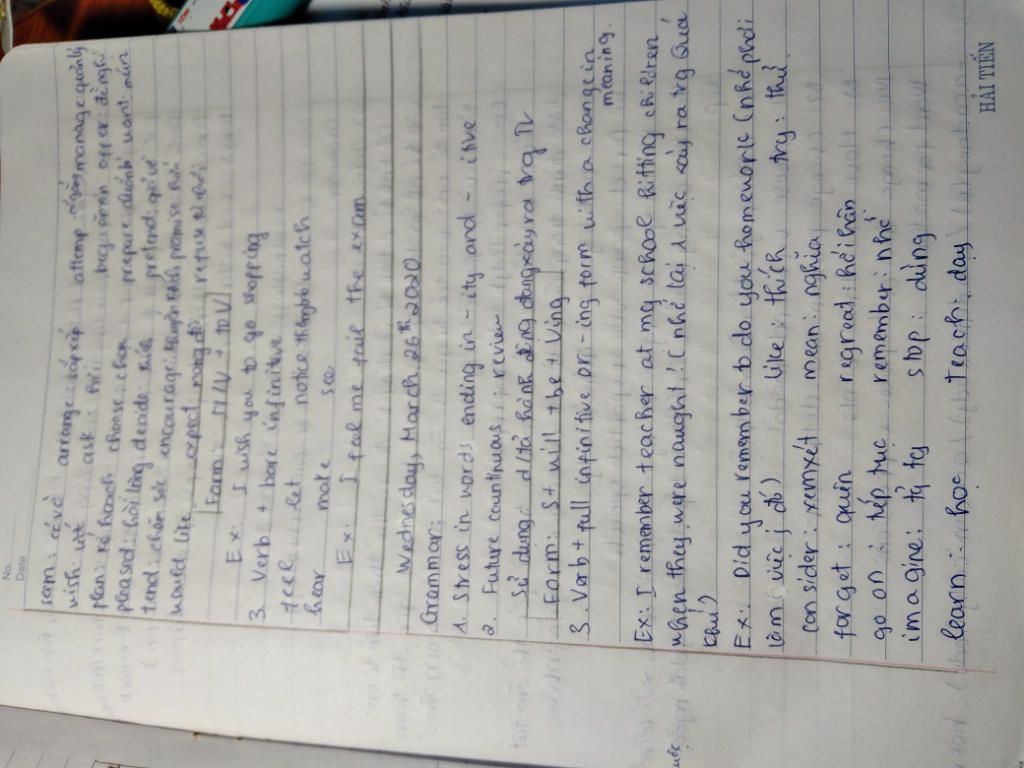 No.
Date
seem: có vẻ arrange: sắp xếp attemp: cố gắng manage: quản lý
wish: ước ask: hỏi beg: cầu xin offer: đề nghị
Plan: kế hoạch choose: chọn prepare: chuẩn bị want: muốn
pleased: hài lòng decide: pretend: giả vờ
tend: chăm sóc encourage: promise:
would like expect: mong đợi refuse: từ chối
Form: + to V
Ex: I wish you to go shopping
3. Verb + bare infinitive
feel let notice watch
hear make see
Ex: I feel me fail the exam
Wednesday, March, 26th, 2020
Grammar:
1. Stress in words ending in - ity and - itive
2. Future countinuous: review
Sử dụng: d/tả hành động đang xảy ra trg TL
Form: S + will + be + Ving
3. Verb + full infinitive or - ing form with a change in
meaning.
Ex: I remember teacher at my school hitting children
when they were naught: (nhớ lại 1 việc xảy ra trg quá
khứ)
Ex: Did you remember to do you homework (nhớ phải
làm việc j đó) like: thích try: thử
consider: xem xét mean: nghĩa
forget: quên regread: hối hận
go on: tiếp tục remember: nhớ
imagine: tỷ tg stop: dừng
learn: học teach: dạy
HẢI TIẾN